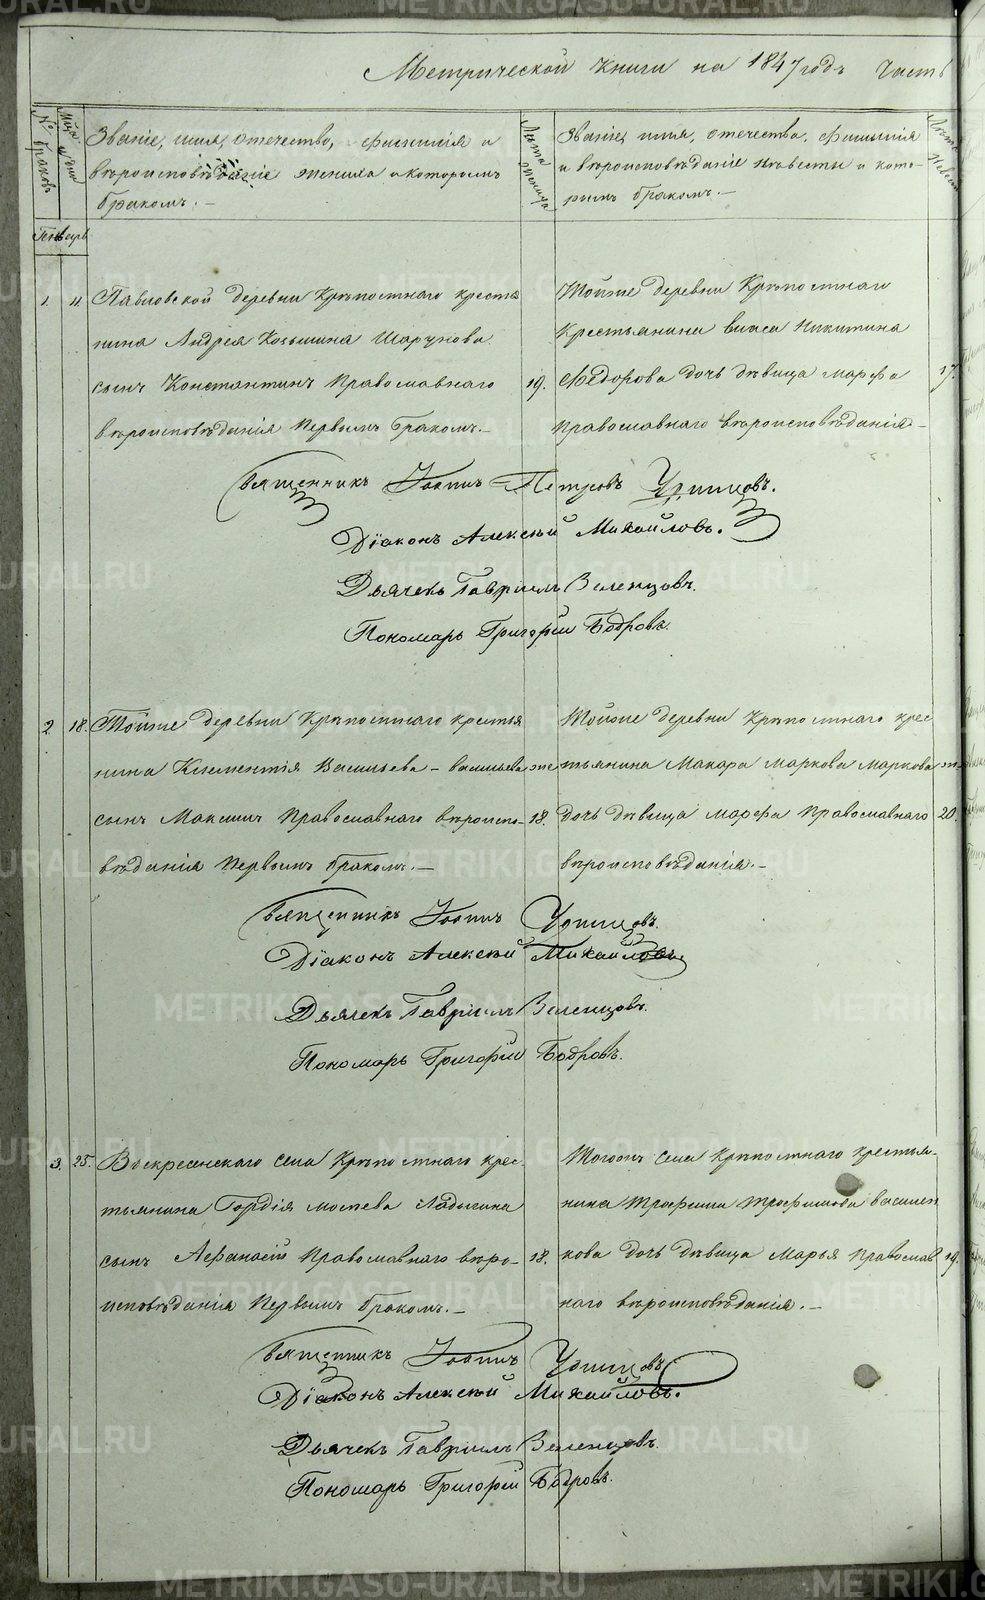 Метрической книги на 1847 годъ Часть
№ браковъ
Мѣсяцъ и дни
Званіе, имя, отечество, фамилія и
вѣроисповѣданіе жениха и которымъ
бракомъ. –
Лѣта жениха
Званіе, имя, отечество, фамилія
и вѣроисповѣданіе невѣсты и кото-
рымъ бракомъ. –
Лѣта невѣсты
Январь
1. 11 Павловской деревни Крѣпостнаго кресть
янина Андрея Козьмина Шарунова
сынъ Константинъ Православнаго 19.
вѣроисповѣданія Первымъ бракомъ. –
Тойже деревни Крѣпостнаго
Крестьянина Власа Никитина
Ѳедорова дочь дѣвица Марфа 17.
Православнаго вѣроисповѣданія –
Священникъ Іоаннъ Петровъ
Діаконъ Алексѣй Михайловъ.
Дьячекъ Гавріилъ Зеленцовъ.
Пономарь Григорій Бобровъ.
2 18. Тойже деревни Крѣпостнаго крестья
нина Климентія Васильева – Васильева же
сынъ Максимъ Православнаго вѣроиспо- 18.
вѣданія Первымъ бракомъ. –
Тойже деревни Крѣпостнаго крес
тьянина Макара Маркова Маркова же
дочь дѣвица Марфа Православнаго 20.
вѣроисповѣданія. –
Священникъ Іоаннъ
Діаконъ Алексѣй Михайловъ
Дьячекъ Гавріилъ Зеленцовъ.
Пономарь Григорій Бобровъ.
3. 25. Воскресенскаго села Крѣпостнаго крес
тьянина Гордія Ладыгина
сынъ Афанасій Православнаго вѣро- 18.
исповѣданія Первымъ бракомъ. –
Тогожъ села Крѣпостнаго крестья-
нина Трофима Трофимова Василен
кова дочь дѣвица Марья Православ 19.
наго вѣроисповѣданія. –
Священникъ Іоаннъ
Діаконъ Алексѣй Михайловъ.
Дьячекъ Гавріилъ Зеленцовъ.
Пономарь Григорій Бобровъ.
METRIKI.GASO-URAL.RU